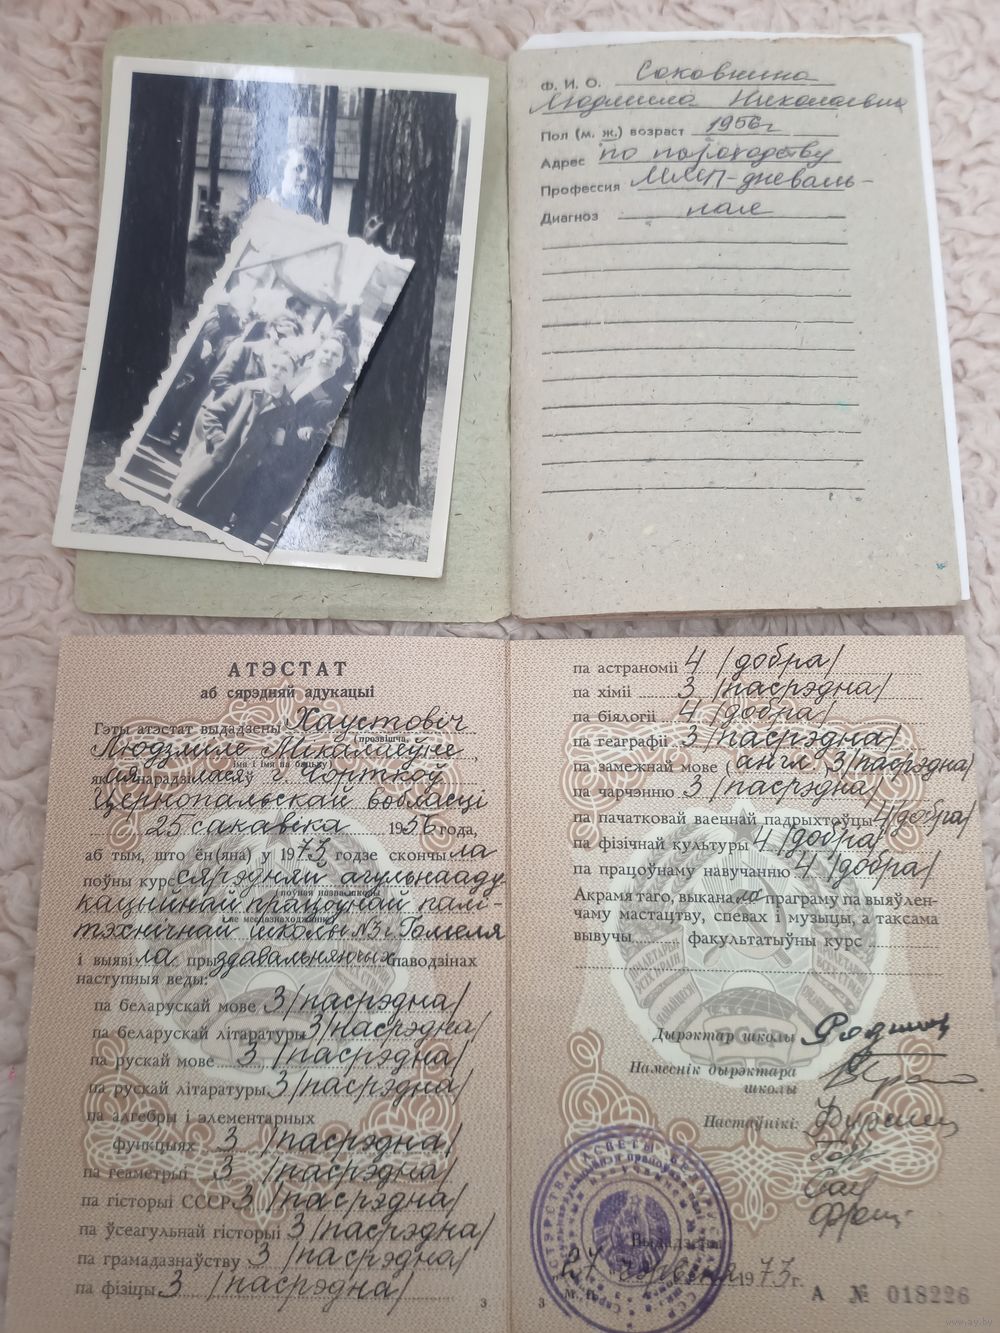 Ф. И. О. Соковнина
Людмила Николаевна
Пол (м. ж.) возраст 1956г
Адрес по пароходству
Профессия ММП-дневаль-
Диагноз ная
АТЭСТАТ
аб сярэдняй адукацыі
Гэты атэстат выдадзены Хаустовіч
(прозвішча,
Людзміле Мікалаеўне
імя і імя па бацьку)
які ая нарадзілася ў г. Чорткоў
Цернопальскай вобласці
25 сакавіка 1956 года,
аб тым, што ён(яна) у 1973 годзе скончыла
поўны курс сярэдняй агульнааду
(поўная назва школы
кацыйнай працоўнай палі-
і яе месцазнаходжанне)
тэхнічнай школы №3 г. Гомеля
і выявіла пры здавальняючых паводзінах
наступныя веды:
па беларускай мове 3 /пасрэдна/
па беларускай літаратуры 3 /пасрэдна/
па рускай мове 3 /пасрэдна/
па рускай літаратуры 3 /пасрэдна/
па алгебры і элементарных
функцыях 3 /пасрэдна/
па геаметрыі 3 /пасрэдна/
па гісторыі СССР 3 /пасрэдна/
па ўсеагульнай гісторыі 3 /пасрэдна/
па грамадазнаўству 3 /пасрэдна/
па фізіцы 3 /пасрэдна/
3
па астраноміі 4 /добра/
па хіміі 3 /пасрэдна/
па біялогіі 4 /добра/
па геаграфіі 3 /пасрэдна/
па замежнай мове (англ.) 3 /пасрэдна/
па чарчэнню 3 /пасрэдна/
па пачатковай ваеннай падрыхтоўцы 4 /добра/
па фізічнай культуры 4 /добра/
па працоўнаму навучанню 4 /добра/
Акрамя таго, выканала праграму па выяўлен-
чаму мастацтву, спевах і музыцы, а таксама
вывучы факультатыўны курс
Дырэктар школы
Намеснік дырэктара
школы
Настаўнікі:
Выдадзены
24 чэрвеня 1973 г.
М. П.
А № 018226
3
www.ay.by